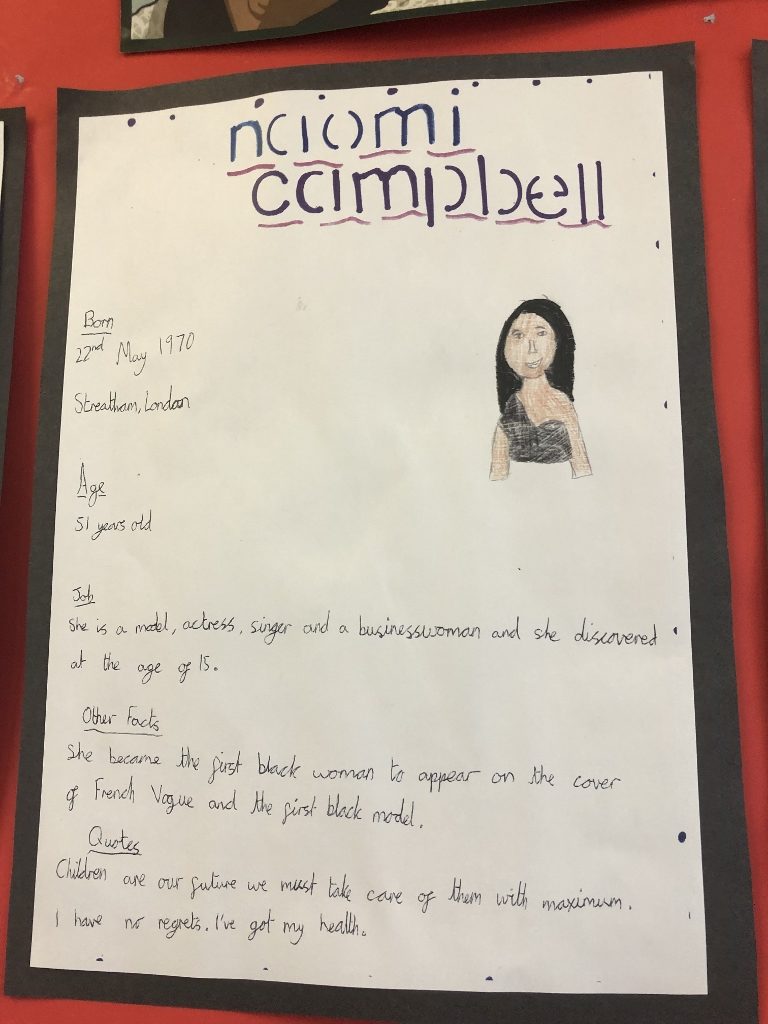 naomi
campbell
Born
22nd May 1970
Streatham, London
Age
51 years old
Job
She is a model, actress, singer and a businesswoman and she discovered
at the age of 15.
Other Facts
She became the first black woman to appear on the cover
of French Vogue and the first black model.
Quotes
Children are our future we must take care of them with maximum.
I have no regrets. I've got my health.